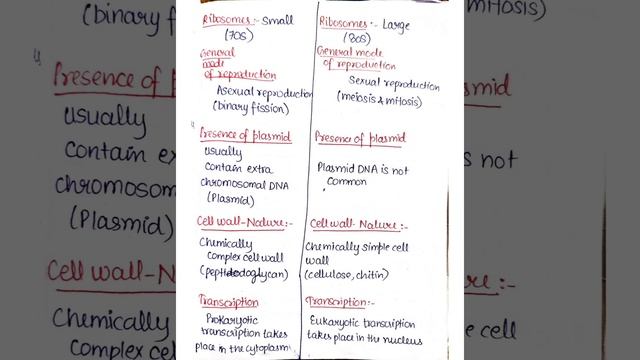 Ribosomes :- Small
(70S)
General
mode
of reproduction
Asexual reproduction
(binary fission)
Presence of plasmid
usually
contain extra
chromosomal DNA
(Plasmid)
Cell wall-Nature:-
Chemically
complex cell wall
(peptidodoglycan)
Transcription
Prokaryotic
transcription takes
place in the cytoplasm
Ribosomes :- Large
(80S)
General mode
of reproduction
Sexual reproduction
(meiosis & mitosis)
Presence of plasmid
Plasmid DNA is not
common
Cell wall- Nature:-
Chemically simple cell
wall
(cellulose, chitin)
Transcription:-
Eukaryotic transcription
takes place in the nucleus
(binary
Presence of
usually
contain
chromosom
(Plasmid)
Cell wall-N
Chemically
complex cel
mitosis)
smid
s not
re:-
e cell